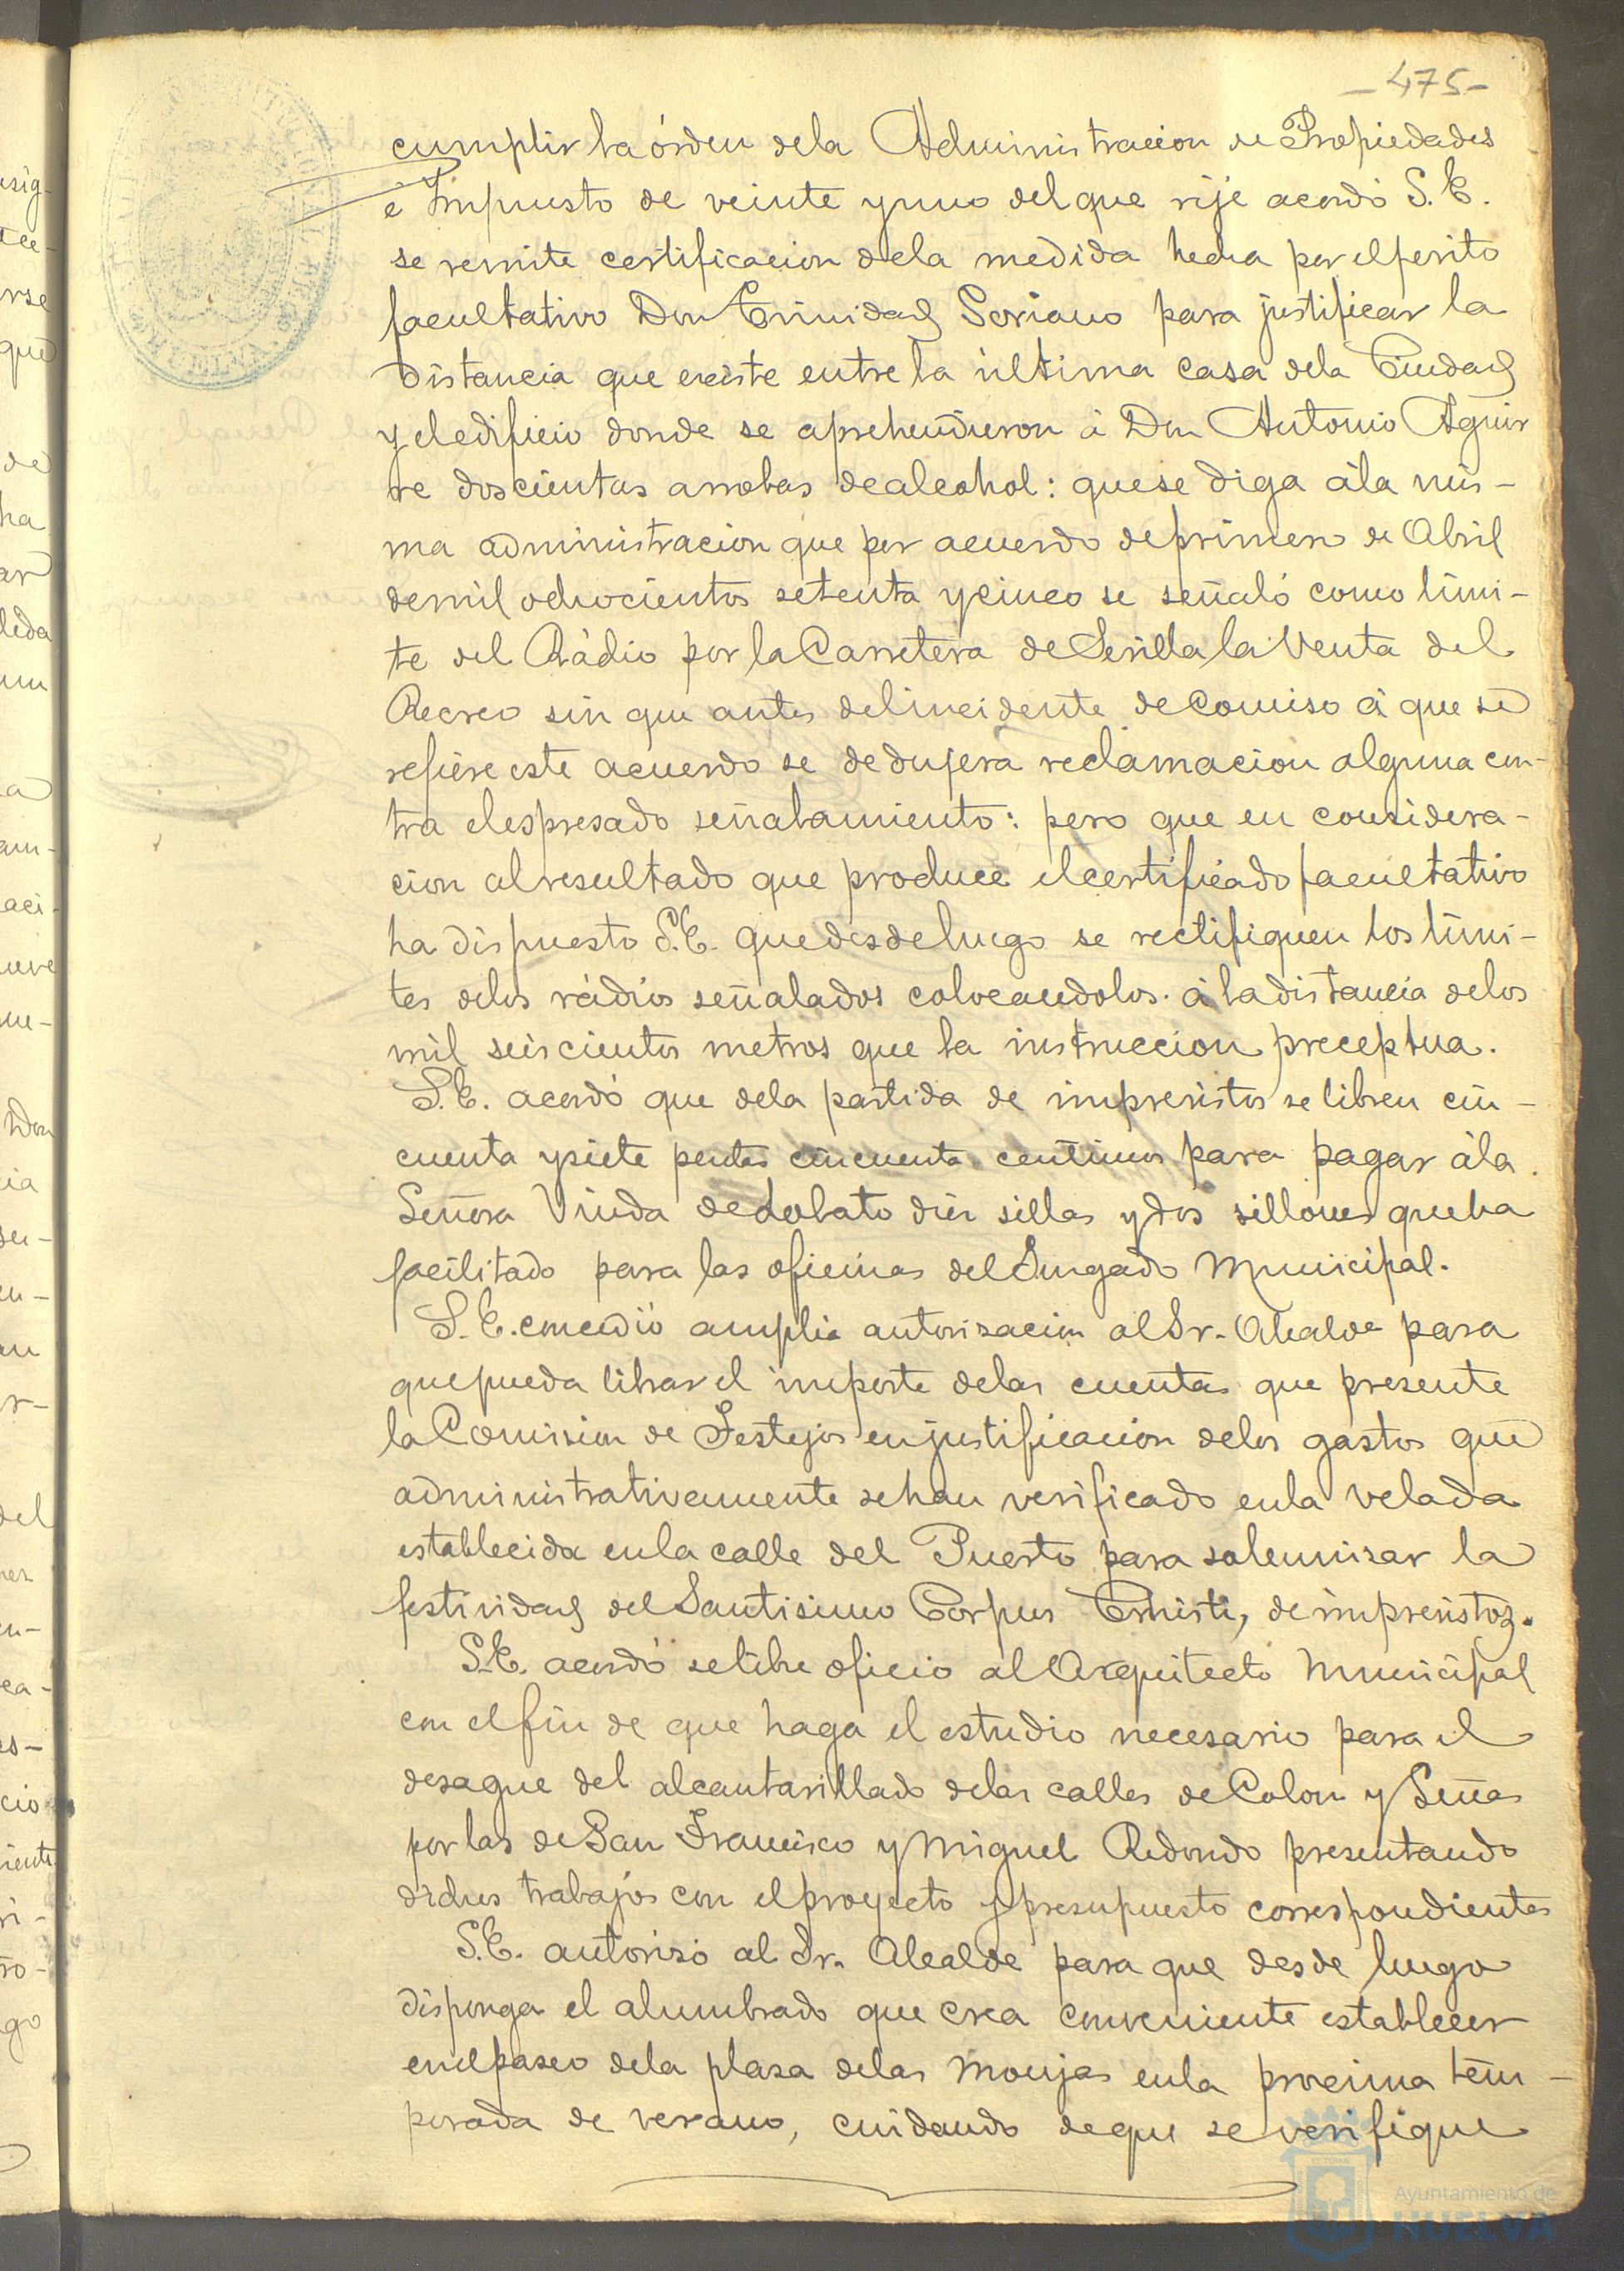 -475-
cumplir la órden dela Administracion de Propiedades
é Impuesto de veinte y uno del que rije acordó S. E.
se remita certificacion dela medida hecha por el perito
facultativo Don Trinidad Soriano para justificar la
distancia que existe entre la última casa dela Ciudad
y el edificio donde se aprehendieron á Don Antonio Aguir
re doscientas arrobas de alcohol: que se diga ála mis-
ma administracion que por acuerdo de primero de Abril
de mil ochocientos setenta y cinco se señaló como limi-
te del Rádio por la Carretera de Sevilla la Venta del
Recreo sin que antes del incidente de Comiso á que se
refiere este acuerdo se dedujera reclamacion alguna con-
tra el espresado señalamiento: pero que en considera-
cion al resultado que produce el certificado facultativo
ha dispuesto S.E. que desde luego se rectifiquen los limi-
tes delos rádios señalados colocandolos á la distancia delos
mil seiscientos metros que la instruccion preceptua.
S.E. acordó que dela partida de imprevistos se libren cin-
cuenta y siete pesetas cincuenta centimos para pagar ála
Señora Viuda de Lobato diez sillas y dos sillones que ha
facilitado para las oficinas del Juzgado Municipal.
S.E. concedió amplia autorizacion al Sr. Alcalde para
que pueda librar el importe delas cuentas que presente
la Comision de Festejos en justificacion delos gastos que
administrativamente se han verificado en la velada
establecida en la calle del Puerto para solemnizar la
festividad del Santisimo Corpus Christi, de imprevistos.
S.E. acordó se libre oficio al Arquitecto Municipal
con el fin de que haga el estudio necesario para el
desague del alcantarillado delas calles de Colon y Señas
por las de San Francisco y Miguel Redondo presentando
dichos trabajos con el proyecto y presupuesto correspondientes
S.E. autorizó al Sr. Alcalde para que desde luego
disponga el alumbrado que crea conveniente establecer
en el paseo dela plaza delas Monjas en la proxima tem-
porada de verano, cuidando de que se verifique
Ayuntamiento de
HUELVA